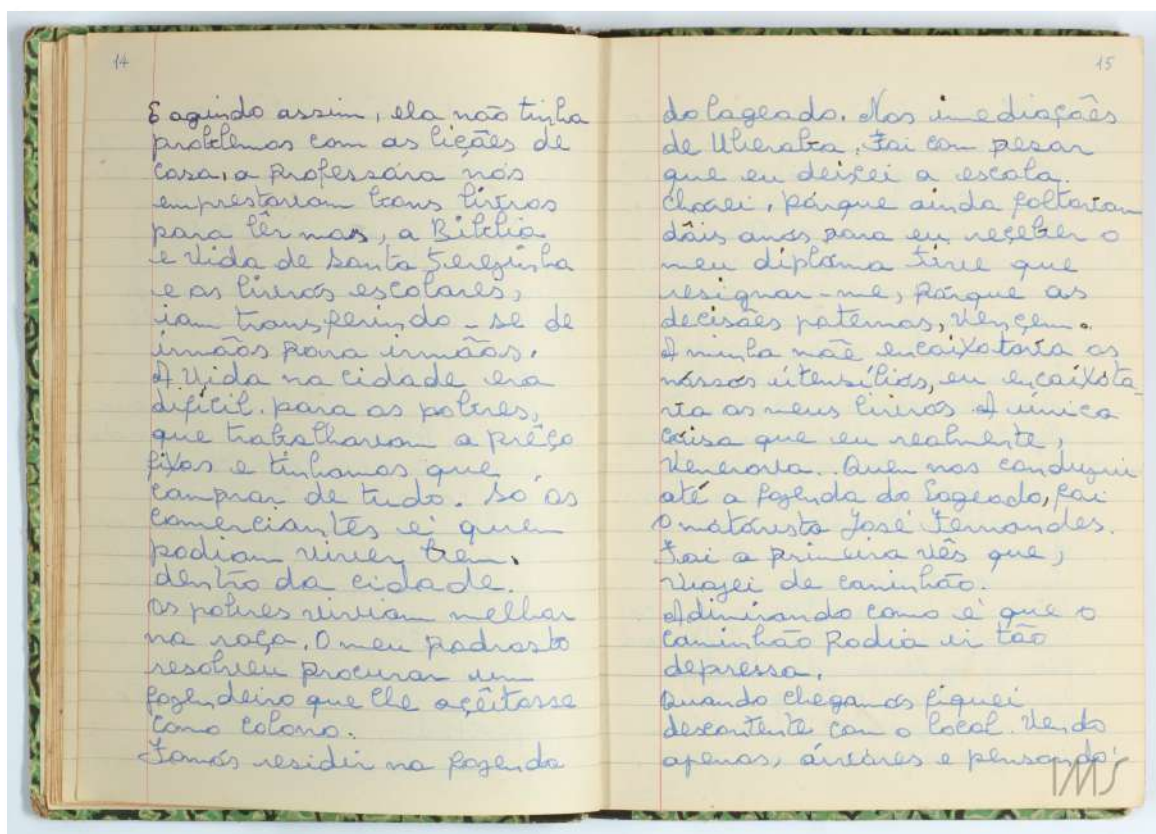 14
E agindo assim, ela não tinha
problemas com as lições de
casa, a professóra nós
emprestavam bons livros
para lêr mos, a Biblia
e vida de Santa Terezinha
e os livrós escolares,
iam transferindo-se de
irmãos para irmãos.
A vida na cidade era
dificil. para os pobres,
que trabalhavam a prêço
fixos e tinhamos que
comprar de tudo. Só os
comerciantes é quem
podiam viver bem.
dentro da cidade.
Os pobres viviam melhor
na roça. O meu padrasto
resolveu procurar um
fazendeiro que lhe açêitasse
como colono.
Fomós residir na fazenda
15
do lageado. Nas imediaçoês
de Uberaba. Foi com pesar
que eu deixei a escola.
Chorei, pórque ainda faltavam
dôis anos para eu reçeber o
meu diplôma tive que
resignar-me, pórque as
decisões paternas, vençem.
A minha mãe encaixotava os
nóssos útensílios, eu encaixóta
va os meus livrós A única
côisa que eu realmente,
venerava. Quem nos conduziu
até a fazenda do lageado, foi
o motórista José Fernandes.
Foi a primeira vês que,
viajei de caminhão.
Adimirando como é que o
caminhão podia ir tão
depressa.
Quando chegamos fiquei
descontente com o local. Vendo
apenas, árvóres e pensando:
IMS